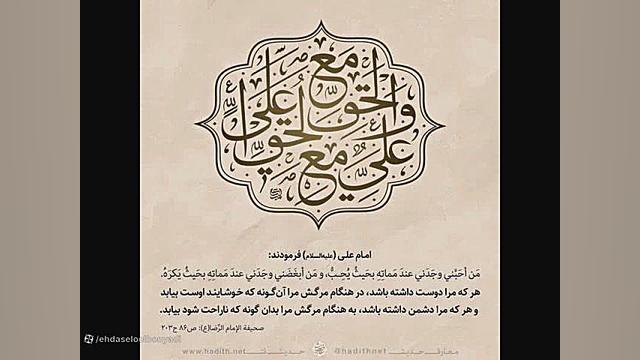 علي مع الحق والحق مع علي
امام علی (علیه‌السلام) فرمودند:
مَن أحَبَّني وجَدَني عندَ مَماتِهِ بحَيثُ يُحِبُّ، و مَن أبغَضَني وجَدَني عندَ مَماتِهِ بحَيثُ يَكرَهُ.
هر که مرا دوست داشته باشد، در هنگام مرگش مرا آن‌گونه که خوشایند اوست بیابد
و هر که مرا دشمن داشته باشد، به هنگام مرگش مرا بدان گونه که ناراحت شود بیابد.
صحيفة الإمام الرّضا(ع): ص۸۶ ح۲۰۳
معارف حدیث @hadithnet حدیث نت www.hadith.net